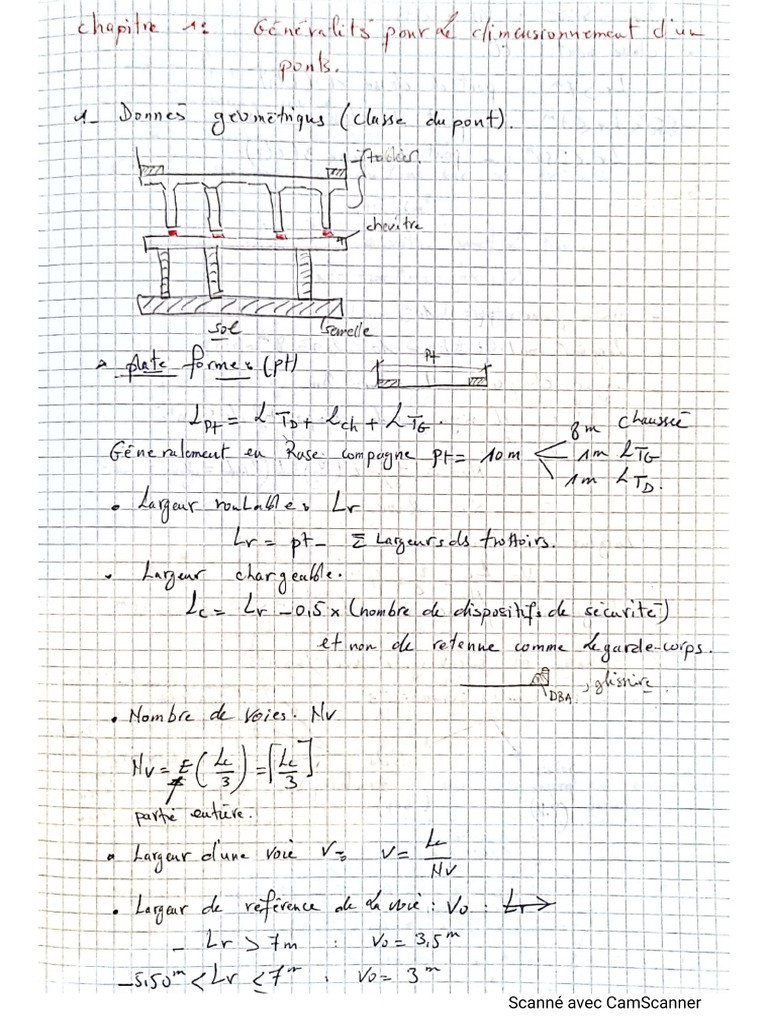 chapitre 1: Généralités pour le dimensionnement d'un
ponts.
1- Donnés géométriqus (classe du pont).
tablier.
chevêtre
sol
semelle
plate formes (pt)
Pt
L_Pt = L T_D + L_ch + L T_G.
8m chaussée
Géneralement en Rase compagne pt = 10m
1m L T_G
1m L T_D.
• Largeur roulable: Lr
Lr = pt - Σ Largeurs ds trottoirs.
• Largeur chargeable.
Lc = Lr - 0,5 x (nombre de dispositifs de sécurité)
et non de retenue comme le garde-corps.
DBA, glissire
• Nombre de voies. Nv
Nv = E (Lc/3) = [Lc/3]
partie entière.
• Largeur d'une voie V= V = Lc/Nv
• Largeur de reférence de la voie: Vo : Lr>
- Lr > 7m : Vo = 3,5m
- 5,50m < Lr ≤ 7m : Vo = 3m
Scanné avec CamScanner